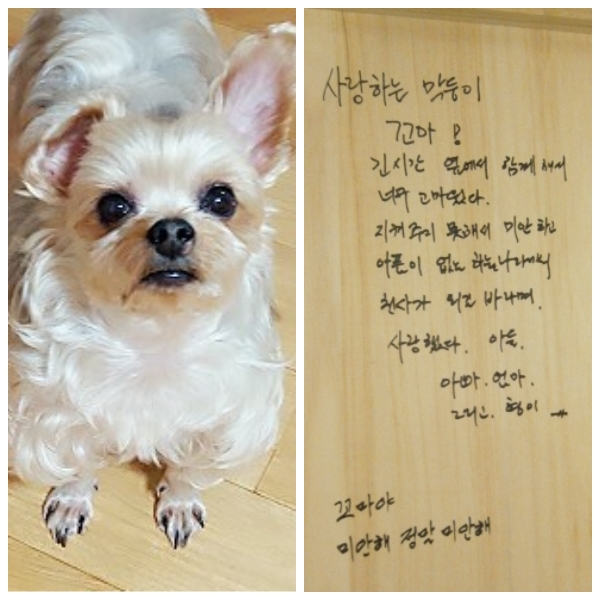 사랑하는 막둥이
꼬마 !
긴시간 옆에서 함께 해서
너무 고마웠다.
지켜주지 못해서 미안하고
아픔이 없는 하늘나라에서
천사가 되길 바라며.
사랑했다. 아들.
아빠. 엄마.
그리고. 형이
꼬마야
미안해 정말 미안해